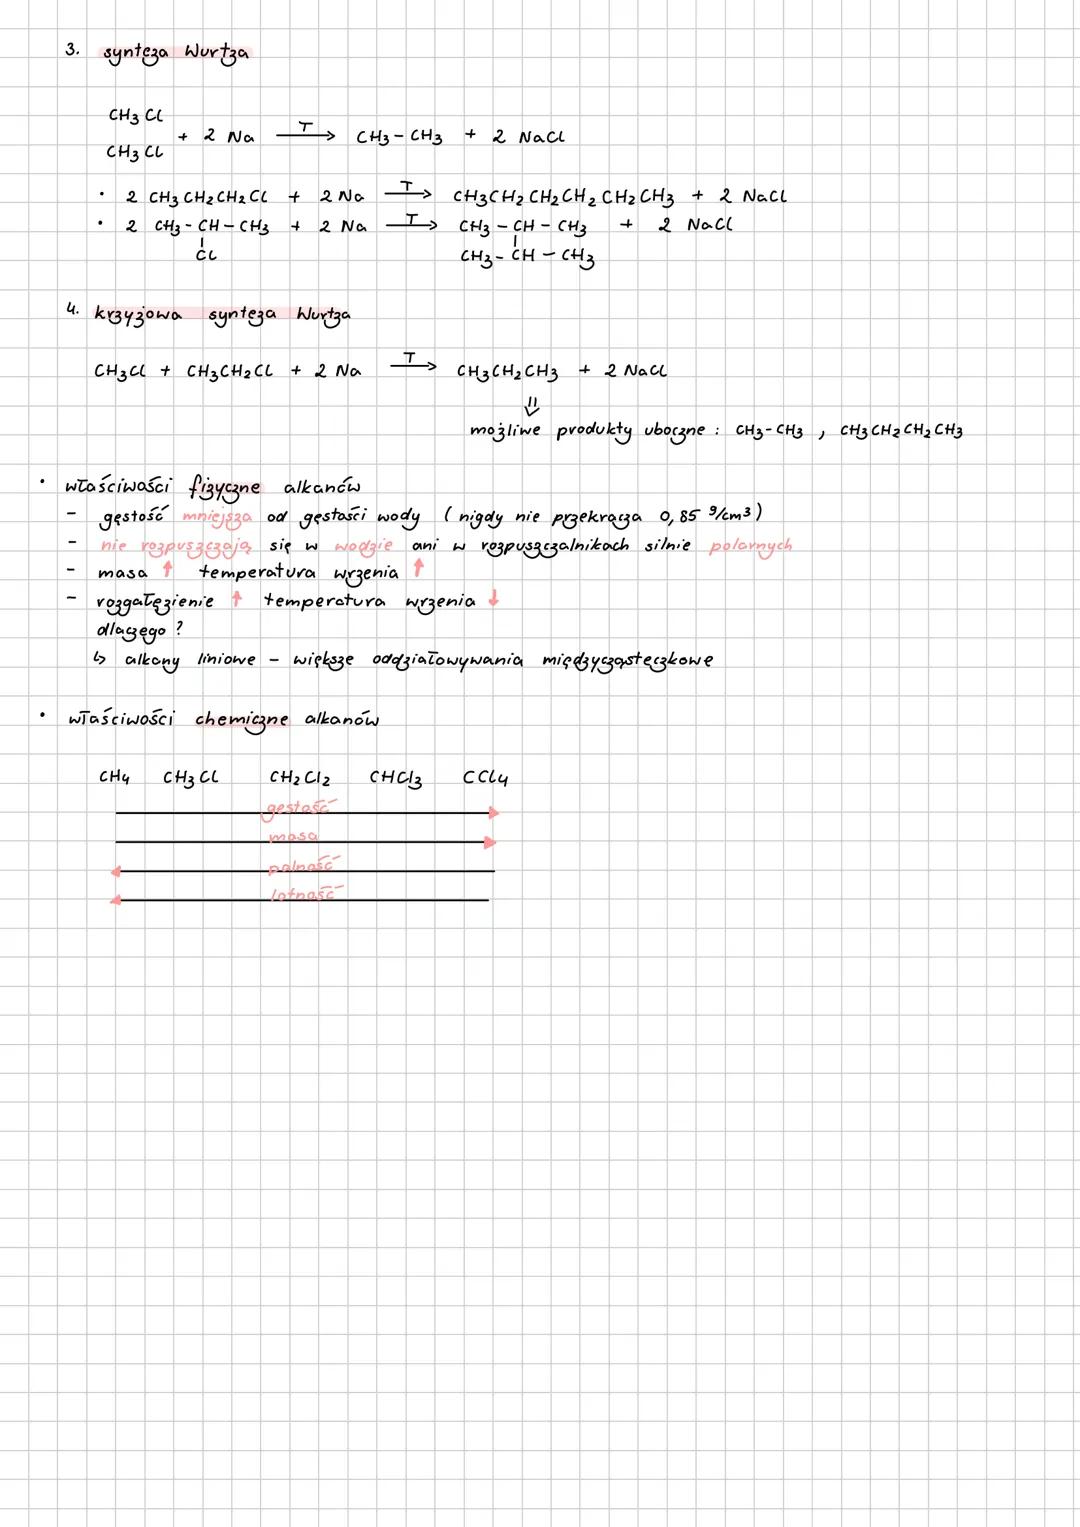 3. synteza Wurtza
CH3 Cl
+ 2 Na T→ CH3 – CH3 + 2 NaCl
CH3 Cl
• 2 CH3 CH2 CH2 Cl + 2 Na T→ CH3CH2 CH2CH2 CH2CH3 + 2 NaCl
• 2 CH3 - CH – CH3 + 2 Na T→ CH3 – CH – CH3 + 2 NaCl
Cl CH3 - CH – CH3
4. krzyżowa synteza Wurtza
CH3Cl + CH3CH2Cl + 2 Na T→ CH3CH2CH3 + 2 NaCl
⇓
możliwe produkty uboczne : CH3-CH3 , CH3CH2CH2CH3
• właściwości fizyczne alkanów
– gęstość mniejsza od gęstości wody ( nigdy nie przekracza 0,85 g/cm3 )
– nie rozpuszczają się w wodzie ani w rozpuszczalnikach silnie polarnych
– masa ↑ temperatura wrzenia ↑
– rozgałęzienie ↑ temperatura wrzenia ↓
dlaczego ?
↳ alkany liniowe – większe oddziaływywania międzycząsteczkowe
• właściwości chemiczne alkanów
CH4 CH3 Cl CH2 Cl2 CHCl3 CCl4
gęstość
masa
palność
lotność